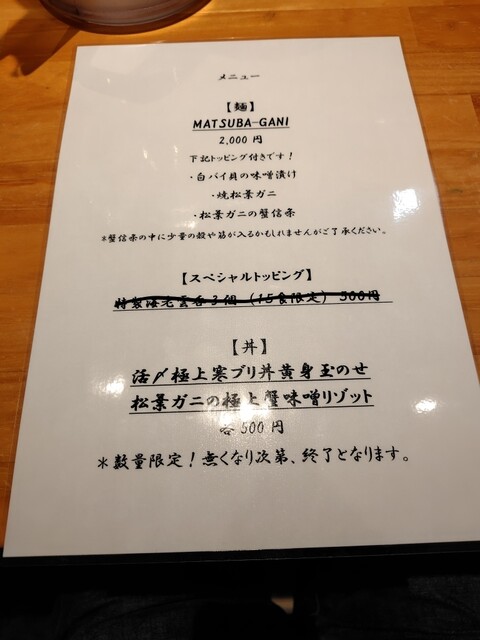 メニュー
【麺】
MATSUBA-GANI
2,000 円
下記トッピング付きです！
・白バイ貝の味噌漬け
・焼松葉ガニ
・松葉ガニの蟹信条
*蟹信条の中に少量の殻や筋が入るかもしれませんがご了承ください。
【スペシャルトッピング】
特製海老雲呑3個（15食限定）500円
【丼】
活〆極上寒ブリ丼黄身玉のせ
松葉ガニの極上蟹味噌リゾット
各 500 円
*数量限定！無くなり次第、終了となります。